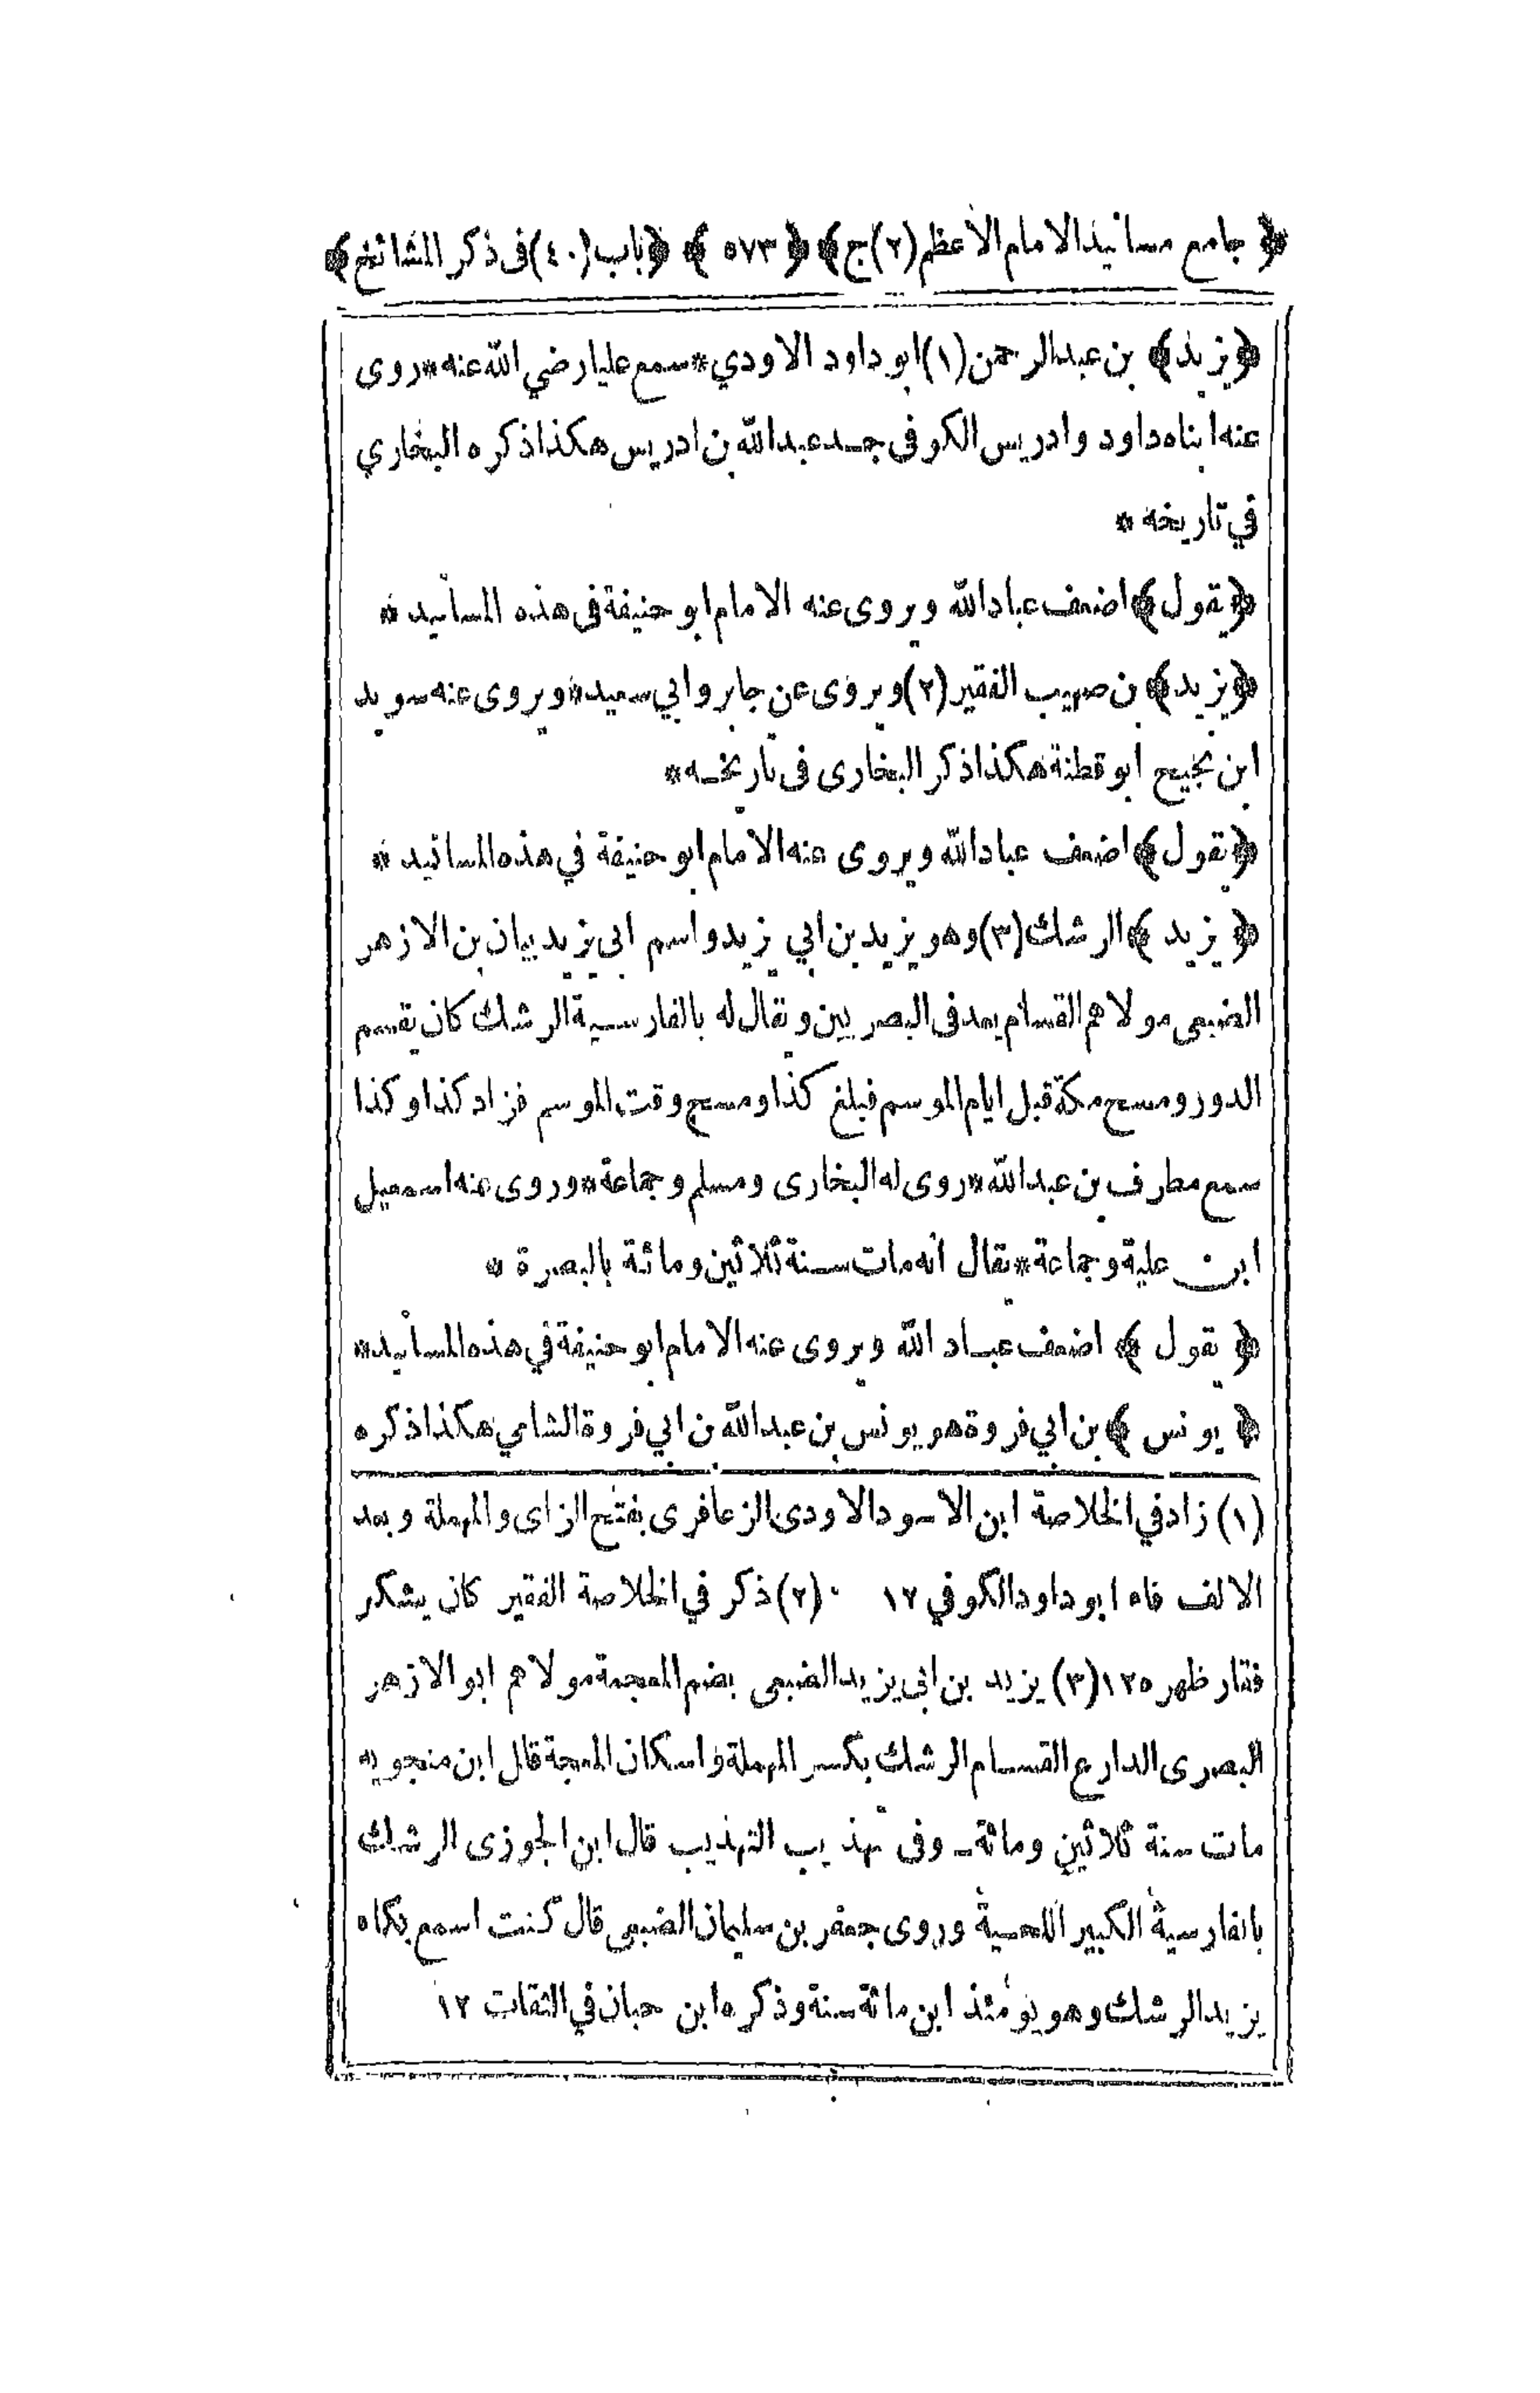 ﴿ جامع مسانيد الامام الاعظم (٢) ج ﴾ ﴿ ٥٧٣ ﴾ ﴿ باب (٤٠) فى ذكر المشائخ ﴾
﴿ يزيد ﴾ بن عبد الرحمن (١) ابو داود الاودي * سمع عليا رضي الله عنه * روى
عنه ابناه داود وادريس الكوفى جد عبد الله بن ادريس هكذا ذكره البخاري
في تاريخه *
﴿ يقول ﴾ اضعف عباد الله ويروى عنه الامام ابو حنيفة فى هذه المسانيد *
﴿ يزيد ﴾ بن صهيب الفقير (٢) ويروى عن جابر وابي سعيد * ويروى عنه سويد
ابن نجيح ابو قطنة هكذا ذكر البخارى فى تاريخه *
﴿ يقول ﴾ اضعف عباد الله ويروى عنه الامام ابو حنيفة في هذه المسانيد *
﴿ يزيد ﴾ الرشك (٣) وهو يزيد بن ابي يزيد واسم ابى يزيد بيان بن الازهر
الضبعى مولاهم القسام يعد فى البصريين ويقال له بالفارسية الرشك كان يقسم
الدور ومسح مكة قبل ايام الموسم فبلغ كذا ومسح وقت الموسم فزاد كذا وكذا
سمع مطرف بن عبد الله * روى له البخارى ومسلم وجماعة * وروى عنه اسمعيل
ابن علية وجماعة * يقال انه مات سنة ثلاثين ومائة بالبصرة *
﴿ يقول ﴾ اضعف عباد الله ويروى عنه الامام ابو حنيفة في هذه المسانيد *
﴿ يونس ﴾ بن ابي فروة هو يونس بن عبد الله بن ابي فروة الشامي هكذا ذكره
(١) زاد في الخلاصة ابن الاسود الاودى الزعافرى بفتح الزاى والمهملة وبعد
الالف فاه ابو داود الكوفي ١٢ (٢) ذكر في الخلاصة الفقير كان يشكر
فقار ظهره ١٢ (٣) يزيد بن ابى يزيد الضبعى بضم المعجمة مولاهم ابو الازهر
البصرى الدارع القسام الرشك بكسر المهملة واسكان المعجمة قال ابن منجويه
مات سنة ثلاثين ومائة ـ وفى تهذيب التهذيب قال ابن الجوزى الرشك
بالفارسية الكبير اللحية وروى جعفر بن سليمان الضبعى قال كنت اسمع بكاه
يزيد الرشك وهو يومئذ ابن مائة سنة وذكره ابن حبان في الثقات ١٢